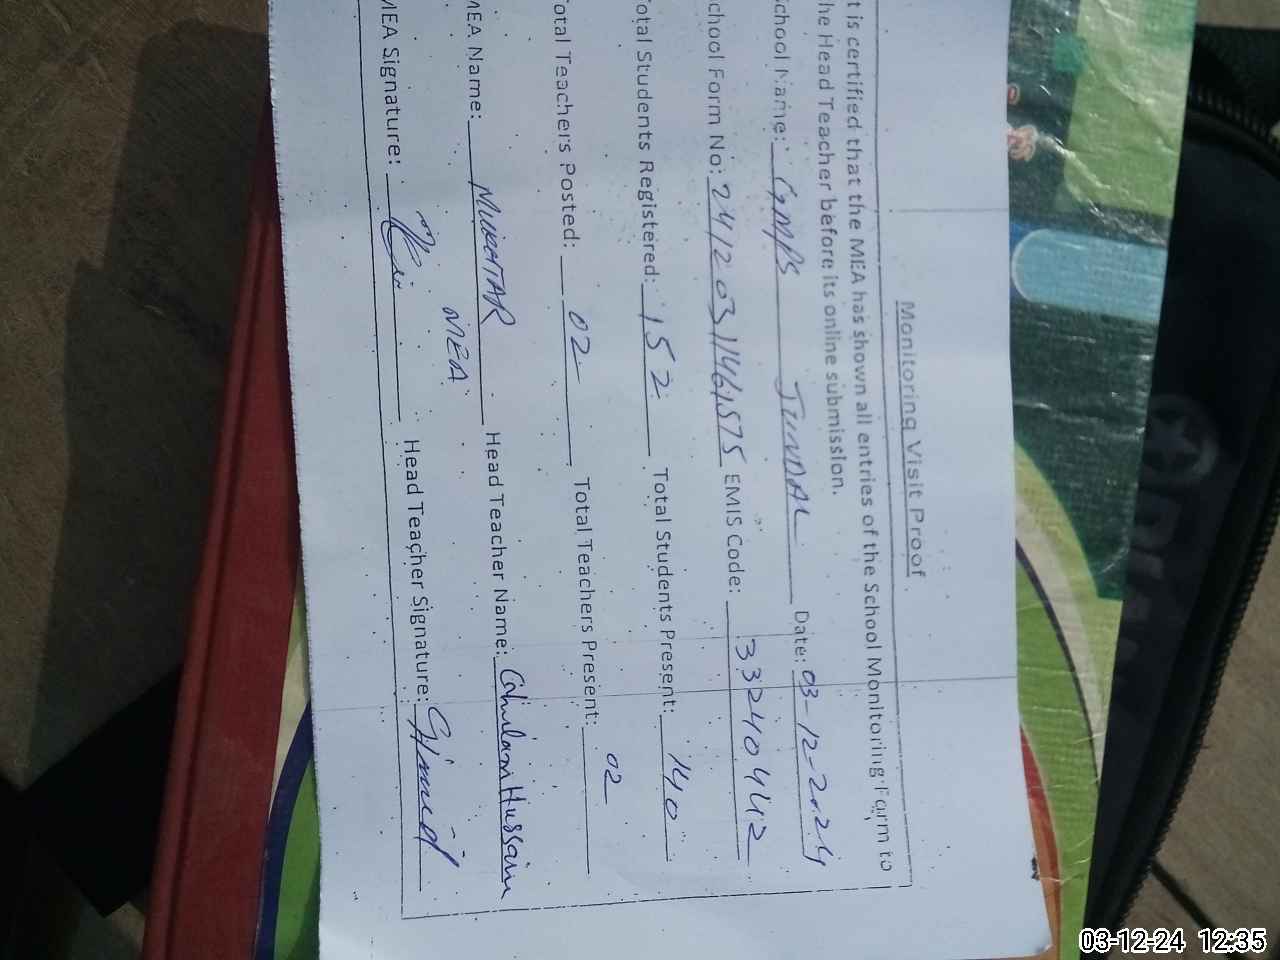 Monitoring Visit Proof
t is certified that the MEA has shown all entries of the School Monitoring Form to
he Head Teacher before its online submission.
School Name: GMPS JUNDAL Date: 03-12-2024
chool Form No: 24120311461575 EMIS Code: 33240442
otal Students Registered: 152 Total Students Present: 140
otal Teachers Posted: 02 Total Teachers Present: 02
MEA Name: MUKHTAR Head Teacher Name: Ghulam Hussain
MEA
MEA Signature: Head Teacher Signature:
03-12-24 12:35